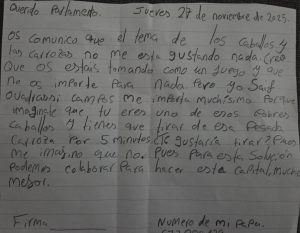 Querido Parlamento. Jueves 27 de noviembre de 2025.
os comunico que el tema de los caballos y
las carrozas no me esta gustando nada. Creo
que os estais tomando como un juego y que
no os importe para nada. Pero yo
campos me importa muchisimo porque
imaginate que tu eres uno de esos pobres
caballos y tienes que tirar de esa pesada
carroza por 5 minutos ¿Te gustaria tirar? Pues
me imagino que no. Pues para esta solucion
podemos colaborar para hacer esta capital, mucho
mejor.
Firma Numero de mi papa: